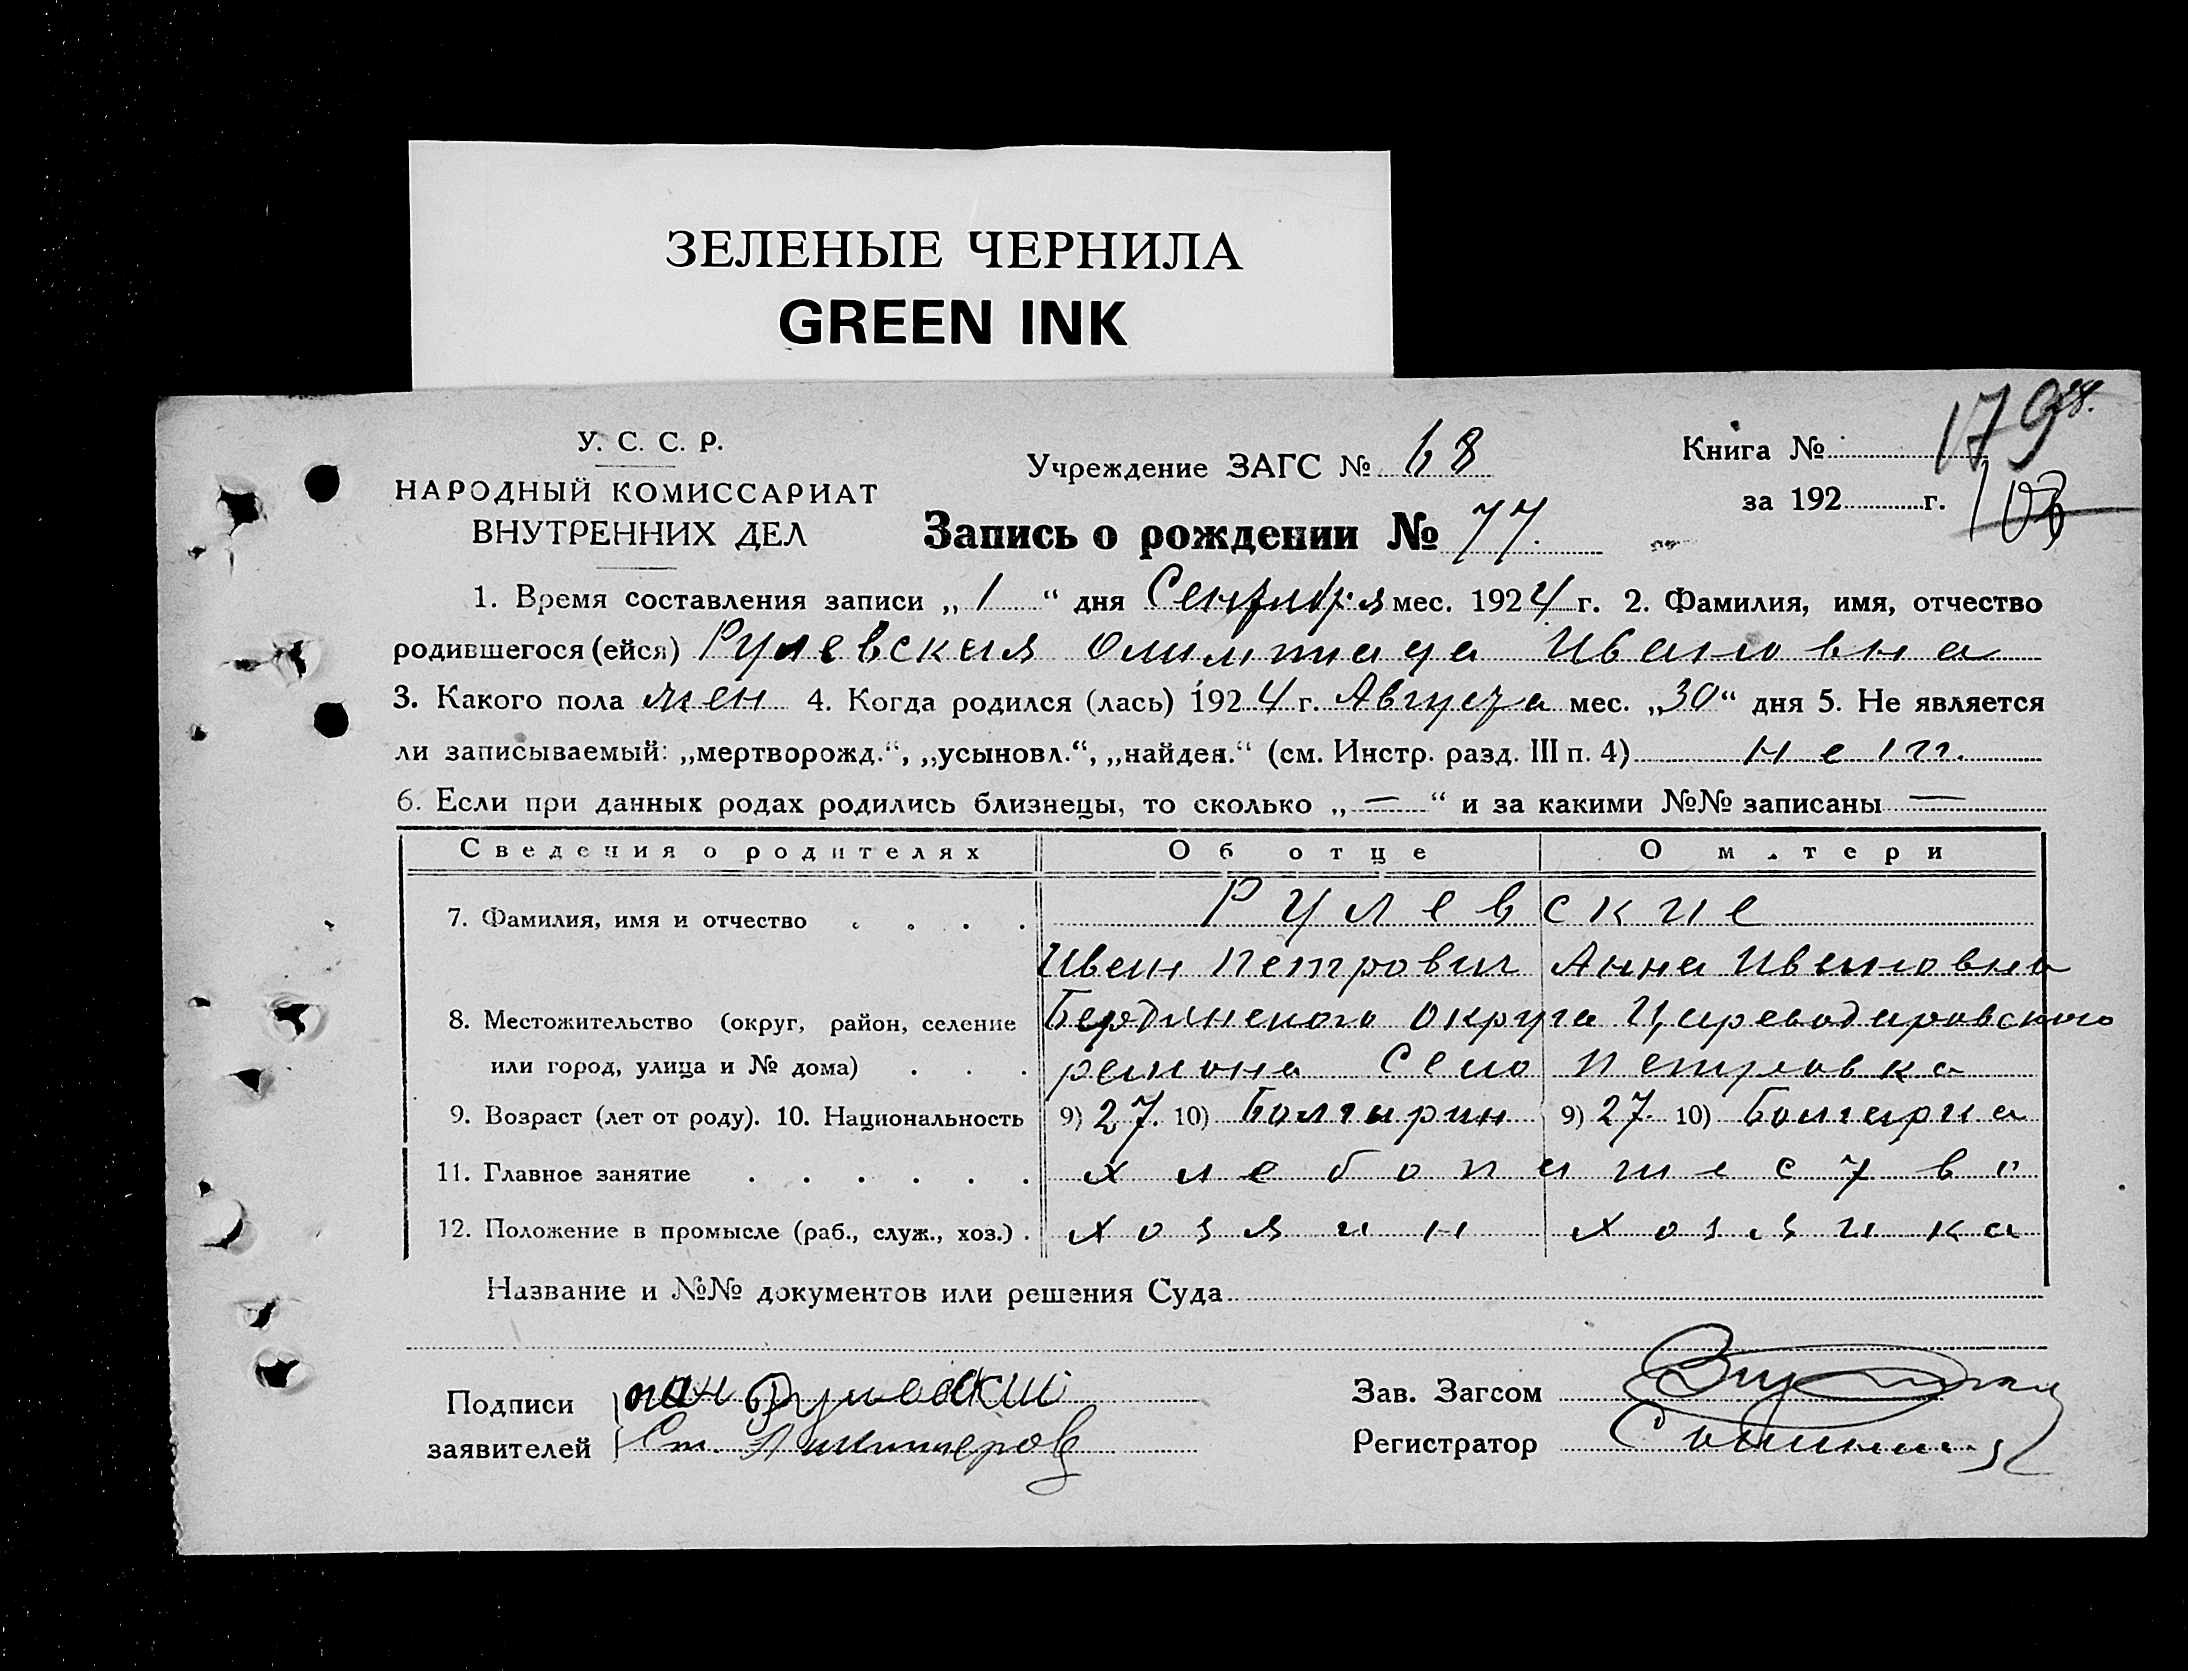 ЗЕЛЕНЫЕ ЧЕРНИЛА
GREEN INK
У. С. С. Р.
НАРОДНЫЙ КОМИССАРИАТ
ВНУТРЕННИХ ДЕЛ
Учреждение ЗАГС № 68
Запись о рождении № 77.
Книга № 179
за 192 г. 103
1. Время составления записи „ 1 “ дня Сентября мес. 1924 г. 2. Фамилия, имя, отчество
родившегося (ейся) Рулевская Олимпиада Ивановна
3. Какого пола жен 4. Когда родился (лась) 1924 г. Августа мес. „30“ дня 5. Не является
ли записываемый: „мертворожд.“, „усыновл.“, „найден.“ (см. Инстр. разд. III п. 4) нет.
6. Если при данных родах родились близнецы, то сколько „ — “ и за какими №№ записаны —
Сведения о родителях Об отце О матери
7. Фамилия, имя и отчество . . . . Рулевские
Иван Петрович Анна Ивановна
8. Местожительство (округ, район, селение Бердянского округа Цареводаровского
или город, улица и № дома) . . . района Село Петровка
9. Возраст (лет от роду). 10. Национальность 9) 27. 10) Болгарин 9) 27. 10) Болгарка
11. Главное занятие . . . . . . хлебопашество
12. Положение в промысле (раб., служ., хоз.) . хозяин хозяика
Название и №№ документов или решения Суда
Подписи Рулевский
заявителей
Зав. Загсом
Регистратор